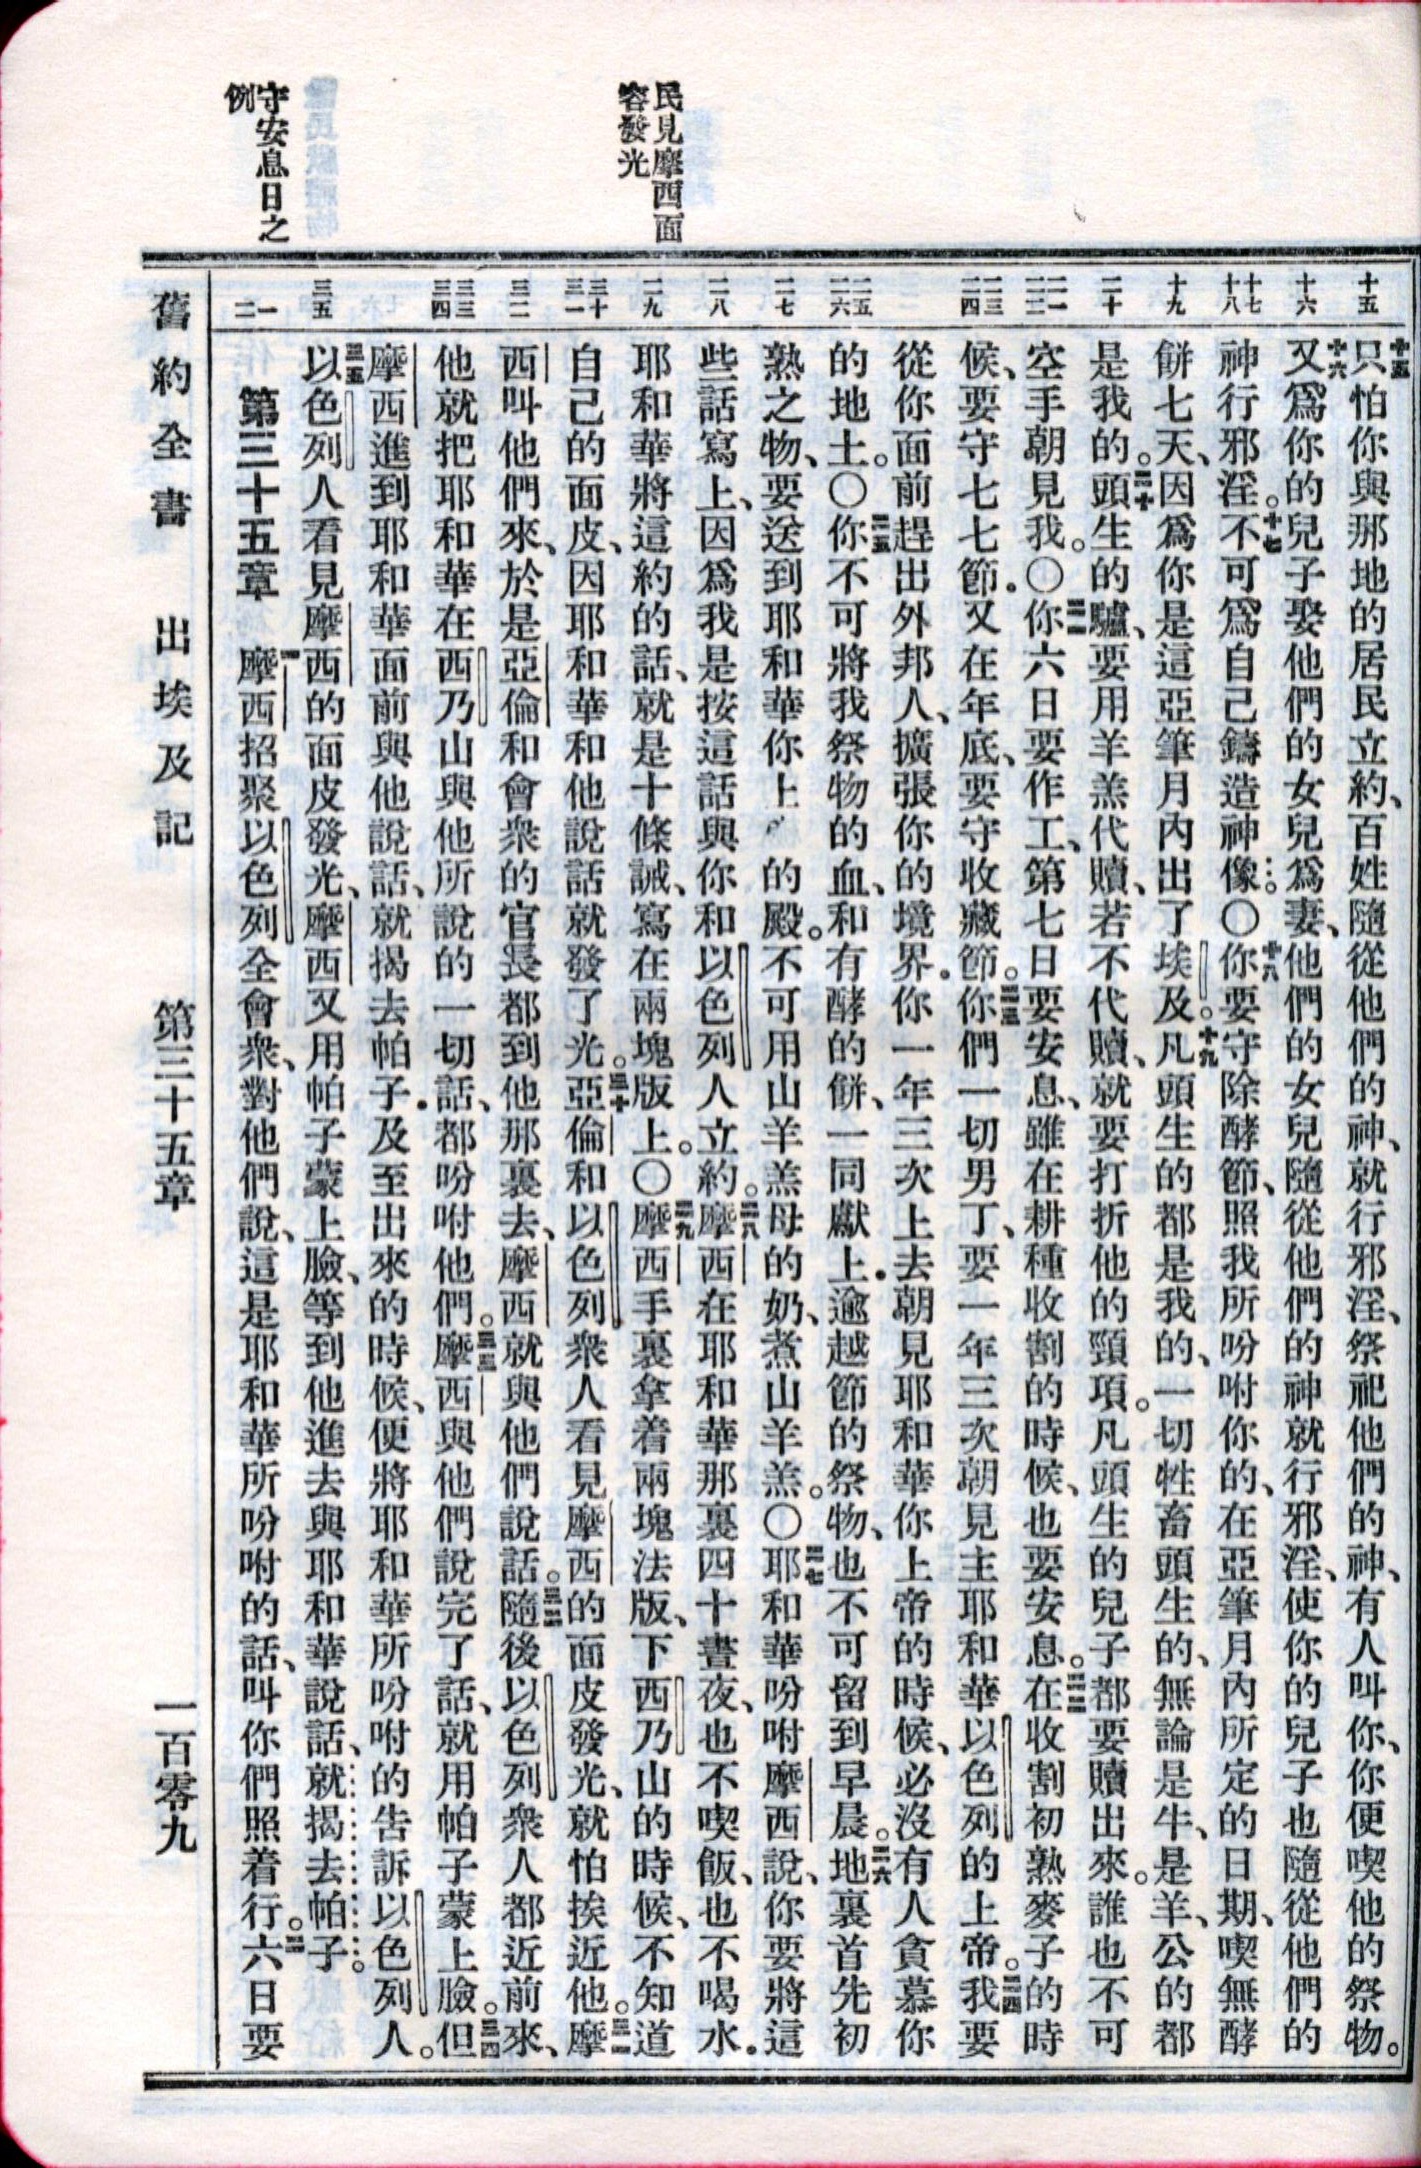 民見摩西面
容發光
守安息日之
例
十五
十六
十七
十八
十九
二十
二一
二二
二三
二四
二五
二六
二七
二八
二九
三十
三一
三二
三三
三四
三五
一
二
十五只怕你與那地的居民立約、百姓隨從他們的神、就行邪淫、祭祀他們的神、有人叫你、你便喫他的祭物。
十六又爲你的兒子娶他們的女兒爲妻、他們的女兒隨從他們的神就行邪淫、使你的兒子也隨從他們的
神行邪淫。十七不可爲自己鑄造神像。〇十八你要守除酵節、照我所吩咐你的、在亞筆月內所定的日期、喫無酵
餅七天、因爲你是這亞筆月內出了埃及。十九凡頭生的都是我的、一切牲畜頭生的、無論是牛、是羊、公的都
是我的。二十頭生的驢、要用羊羔代贖、若不代贖、就要打折他的頸項。凡頭生的兒子都要贖出來。誰也不可
空手朝見我。〇二一你六日要作工、第七日要安息、雖在耕種收割的時候、也要安息。二二在收割初熟麥子的時
候、要守七七節．又在年底、要守收藏節。二三你們一切男丁、要一年三次朝見主耶和華以色列的上帝。二四我要
從你面前趕出外邦人、擴張你的境界．你一年三次上去朝見耶和華你上帝的時候、必沒有人貪慕你
的地土。〇二五你不可將我祭物的血、和有酵的餅、一同獻上．逾越節的祭物、也不可留到早晨。二六地裏首先初
熟之物、要送到耶和華你上 的殿。不可用山羊羔母的奶、煮山羊羔。〇二七耶和華吩咐摩西說、你要將這
些話寫上、因爲我是按這話與你和以色列人立約。二八摩西在耶和華那裏四十晝夜、也不喫飯、也不喝水．
耶和華將這約的話、就是十條誡、寫在兩塊版上。〇二九摩西手裏拿着兩塊法版、下西乃山的時候、不知道
自己的面皮、因耶和華和他說話就發了光。三十亞倫和以色列衆人看見摩西的面皮發光、就怕挨近他。三一摩
西叫他們來、於是亞倫和會衆的官長都到他那裏去、摩西就與他們說話。三二隨後以色列衆人都近前來、
他就把耶和華在西乃山與他所說的一切話、都吩咐他們。三三摩西與他們說完了話、就用帕子蒙上臉。三四但
摩西進到耶和華面前與他說話、就揭去帕子．及至出來的時候、便將耶和華所吩咐的告訴以色列人。
三五以色列人看見摩西的面皮發光、摩西又用帕子蒙上臉、等到他進去與耶和華說話、就揭去帕子。
第三十五章 一摩西招聚以色列全會衆、對他們說、這是耶和華所吩咐的話、叫你們照着行。二六日要
舊約全書 出埃及記 第三十五章 一百零九